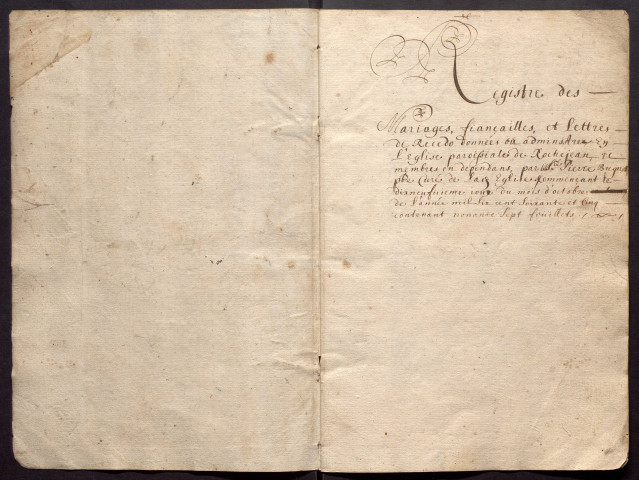 Registre des
Mariages, fiançailles, et Lettres
de Recedo données ou adminstrées en
L'eglise parochiale de Rochejean, et
membres en dependans, par Pierre
pbre Curé de Lad Eglise, Commençant le
dixneufuieme iour du mois d'octobre
de L'année mil six cent soixante et cinq
contenant nonante sept feuillets.